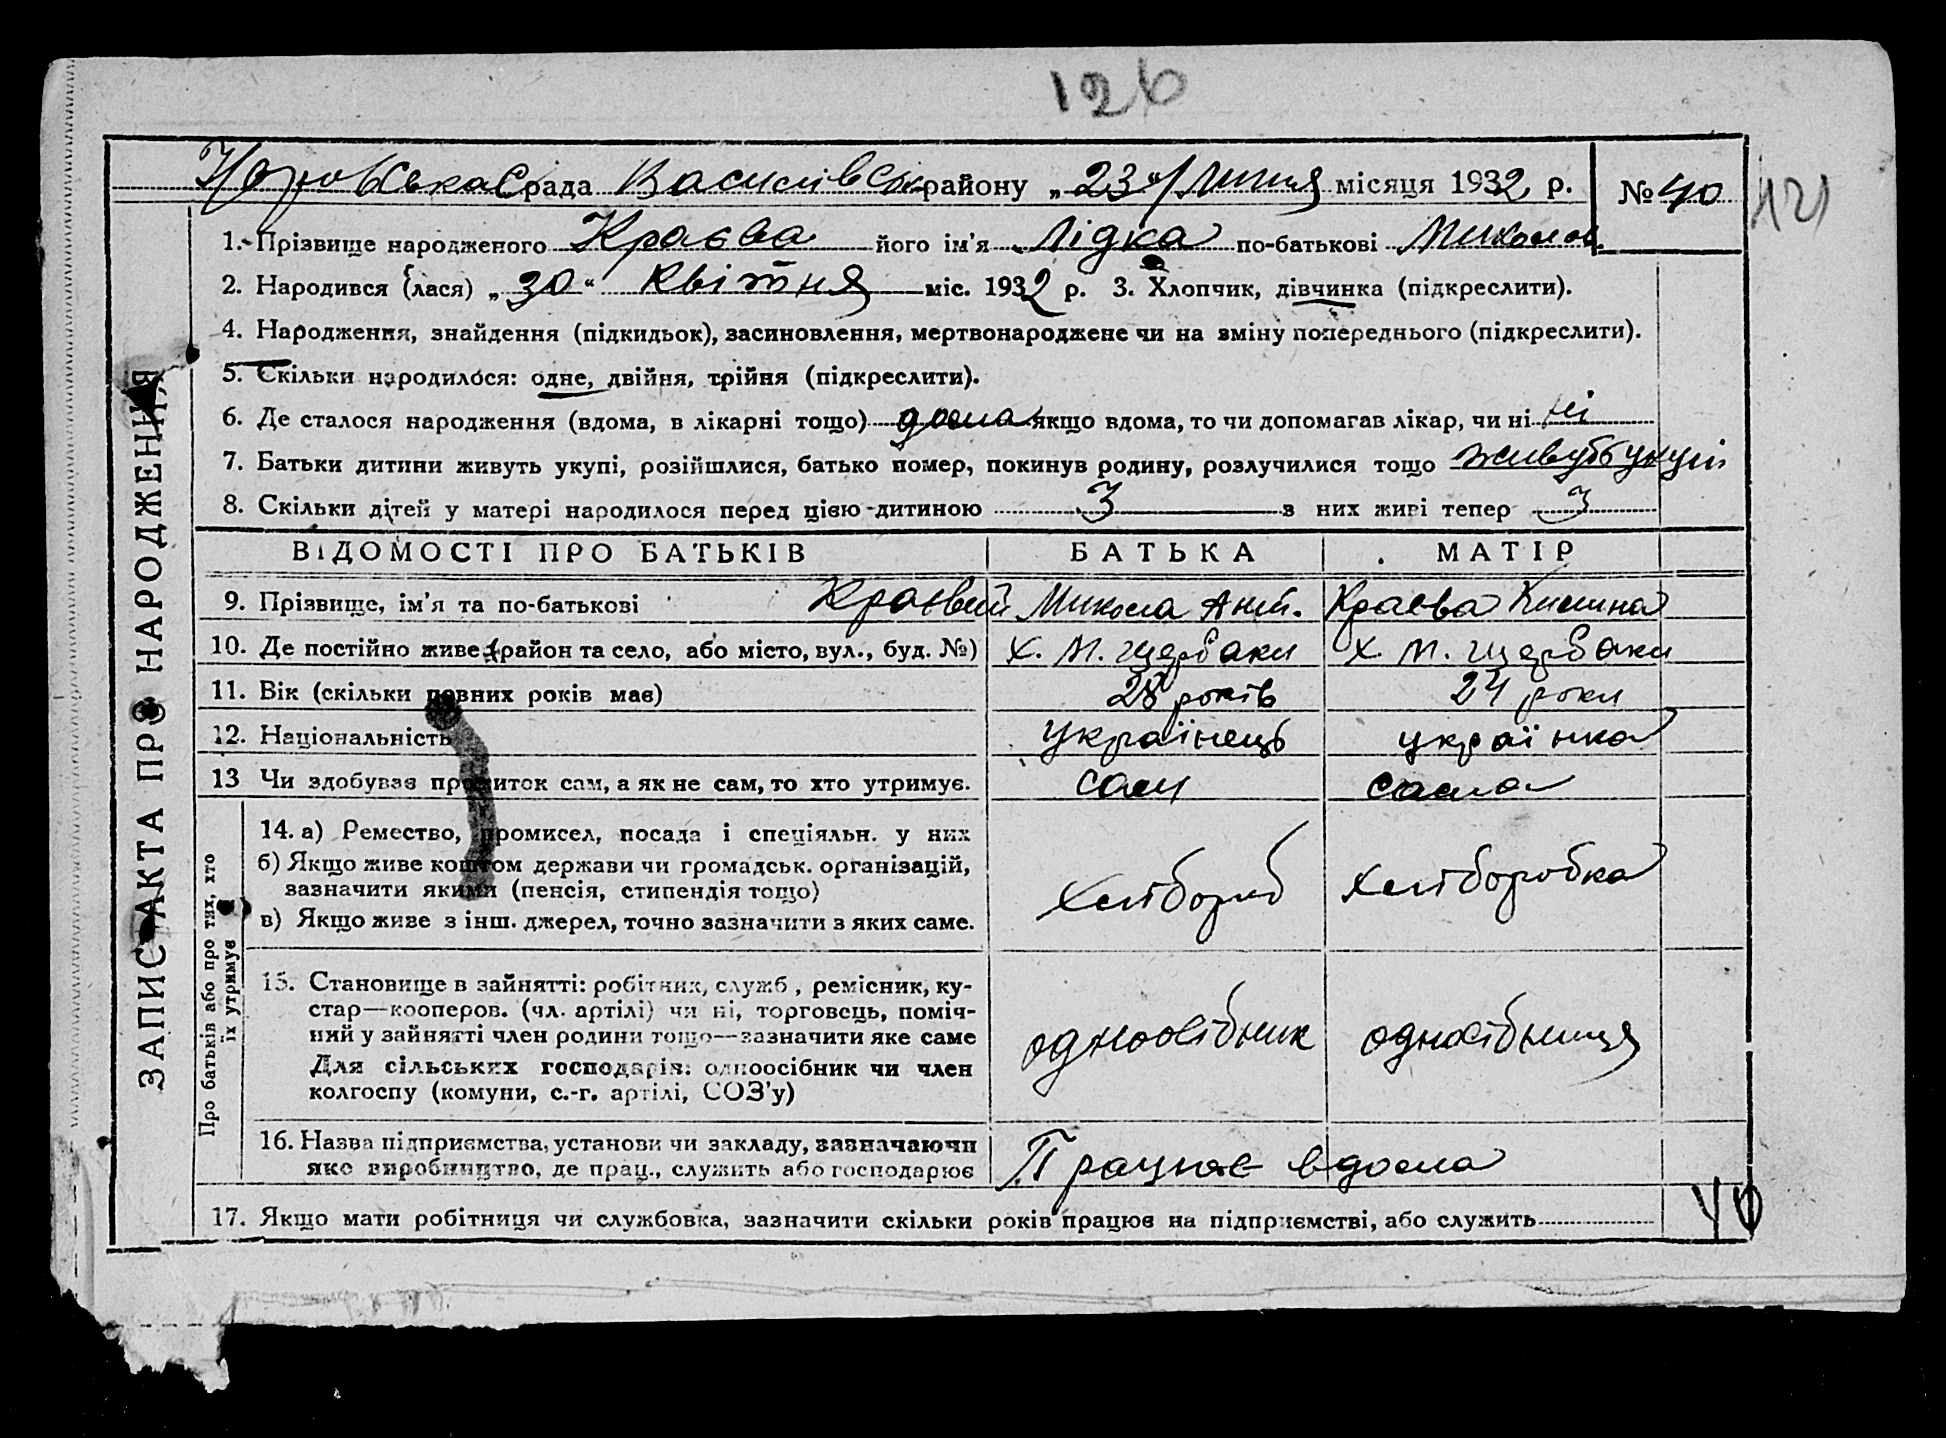 126
рада Василівськ району „23“ липня місяця 1932 р. № 40
121
1. Прізвище народженого Краєва його ім'я Лідка по-батькові Миколов.
2. Народився (лася) „30“ квітня міс. 1932 р. 3. Хлопчик, дівчинка (підкреслити).
4. Народження, знайдення (підкидьок), засиновлення, мертвонароджене чи на зміну попереднього (підкреслити).
5. Скільки народилося: одне, двійня, трійня (підкреслити).
6. Де сталося народження (вдома, в лікарні тощо) дома якщо вдома, то чи допомагав лікар, чи ні ні
7. Батьки дитини живуть укупі, розійшлися, батько помер, покинув родину, розлучилися тощо живуть укупі
8. Скільки дітей у матері народилося перед цією дитиною 3 з них живі тепер 3
ЗАПИС АКТА ПРО НАРОДЖЕННЯ
ВІДОМОСТІ ПРО БАТЬКІВ БАТЬКА МАТІР
9. Прізвище, ім'я та по-батькові Краєвий Микола Ант. Краєва Килина
10. Де постійно живе (район та село, або місто, вул., буд. №) х. М. Щербаки х. М. Щербаки
11. Вік (скільки повних років має) 28 років 24 роки
12. Національність українець українка
13 Чи здобуває прожиток сам, а як не сам, то хто утримує. сам сама
Про батьків або про тих, хто
їх утримує
14. а) Ремество, промисел, посада і спеціяльн. у них
б) Якщо живе коштом держави чи громадськ. організацій,
зазначити якими (пенсія, стипендія тощо)
в) Якщо живе з інш. джерел, точно зазначити з яких саме.
хлібороб хліборобка
15. Становище в зайнятті: робітник, служб, ремісник, ку-
стар—кооперов. (чл. артілі) чи ні, торговець, поміч-
ний у зайнятті член родини тощо—зазначити яке саме
Для сільських господарів: одноосібник чи член
колгоспу (комуни, с.-г. артілі, СОЗ'у)
одноосібник одноосібниця
16. Назва підприємства, установи чи закладу, зазначаючи
яке виробництво, де прац., служить або господарює
Працює вдома
17. Якщо мати робітниця чи службовка, зазначити скільки років працює на підприємстві, або служить
40